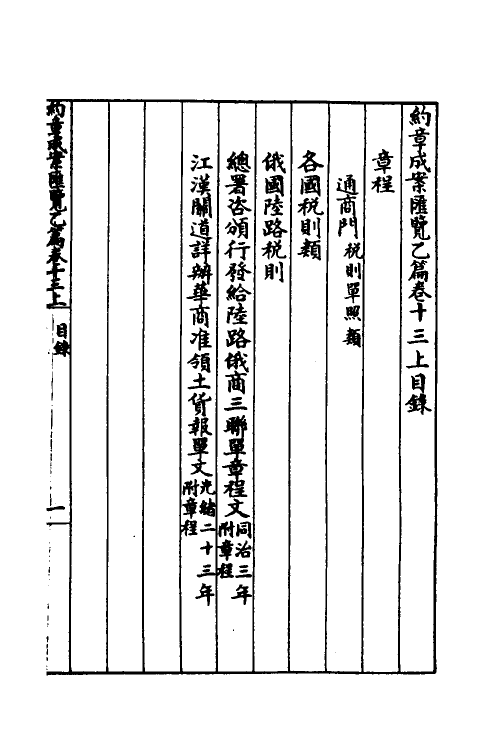 約章成案匯覽乙篇卷十三上目錄
章程
通商門 稅則單照類
各國稅則類
俄國陸路稅則
總署咨頒行發給陸路俄商三聯單章程文 同治三年附章程
江漢關道詳辦華商准領土貨報單文 光緒二十三年附章程
約章成案匯覽乙篇卷十三上 目錄 一